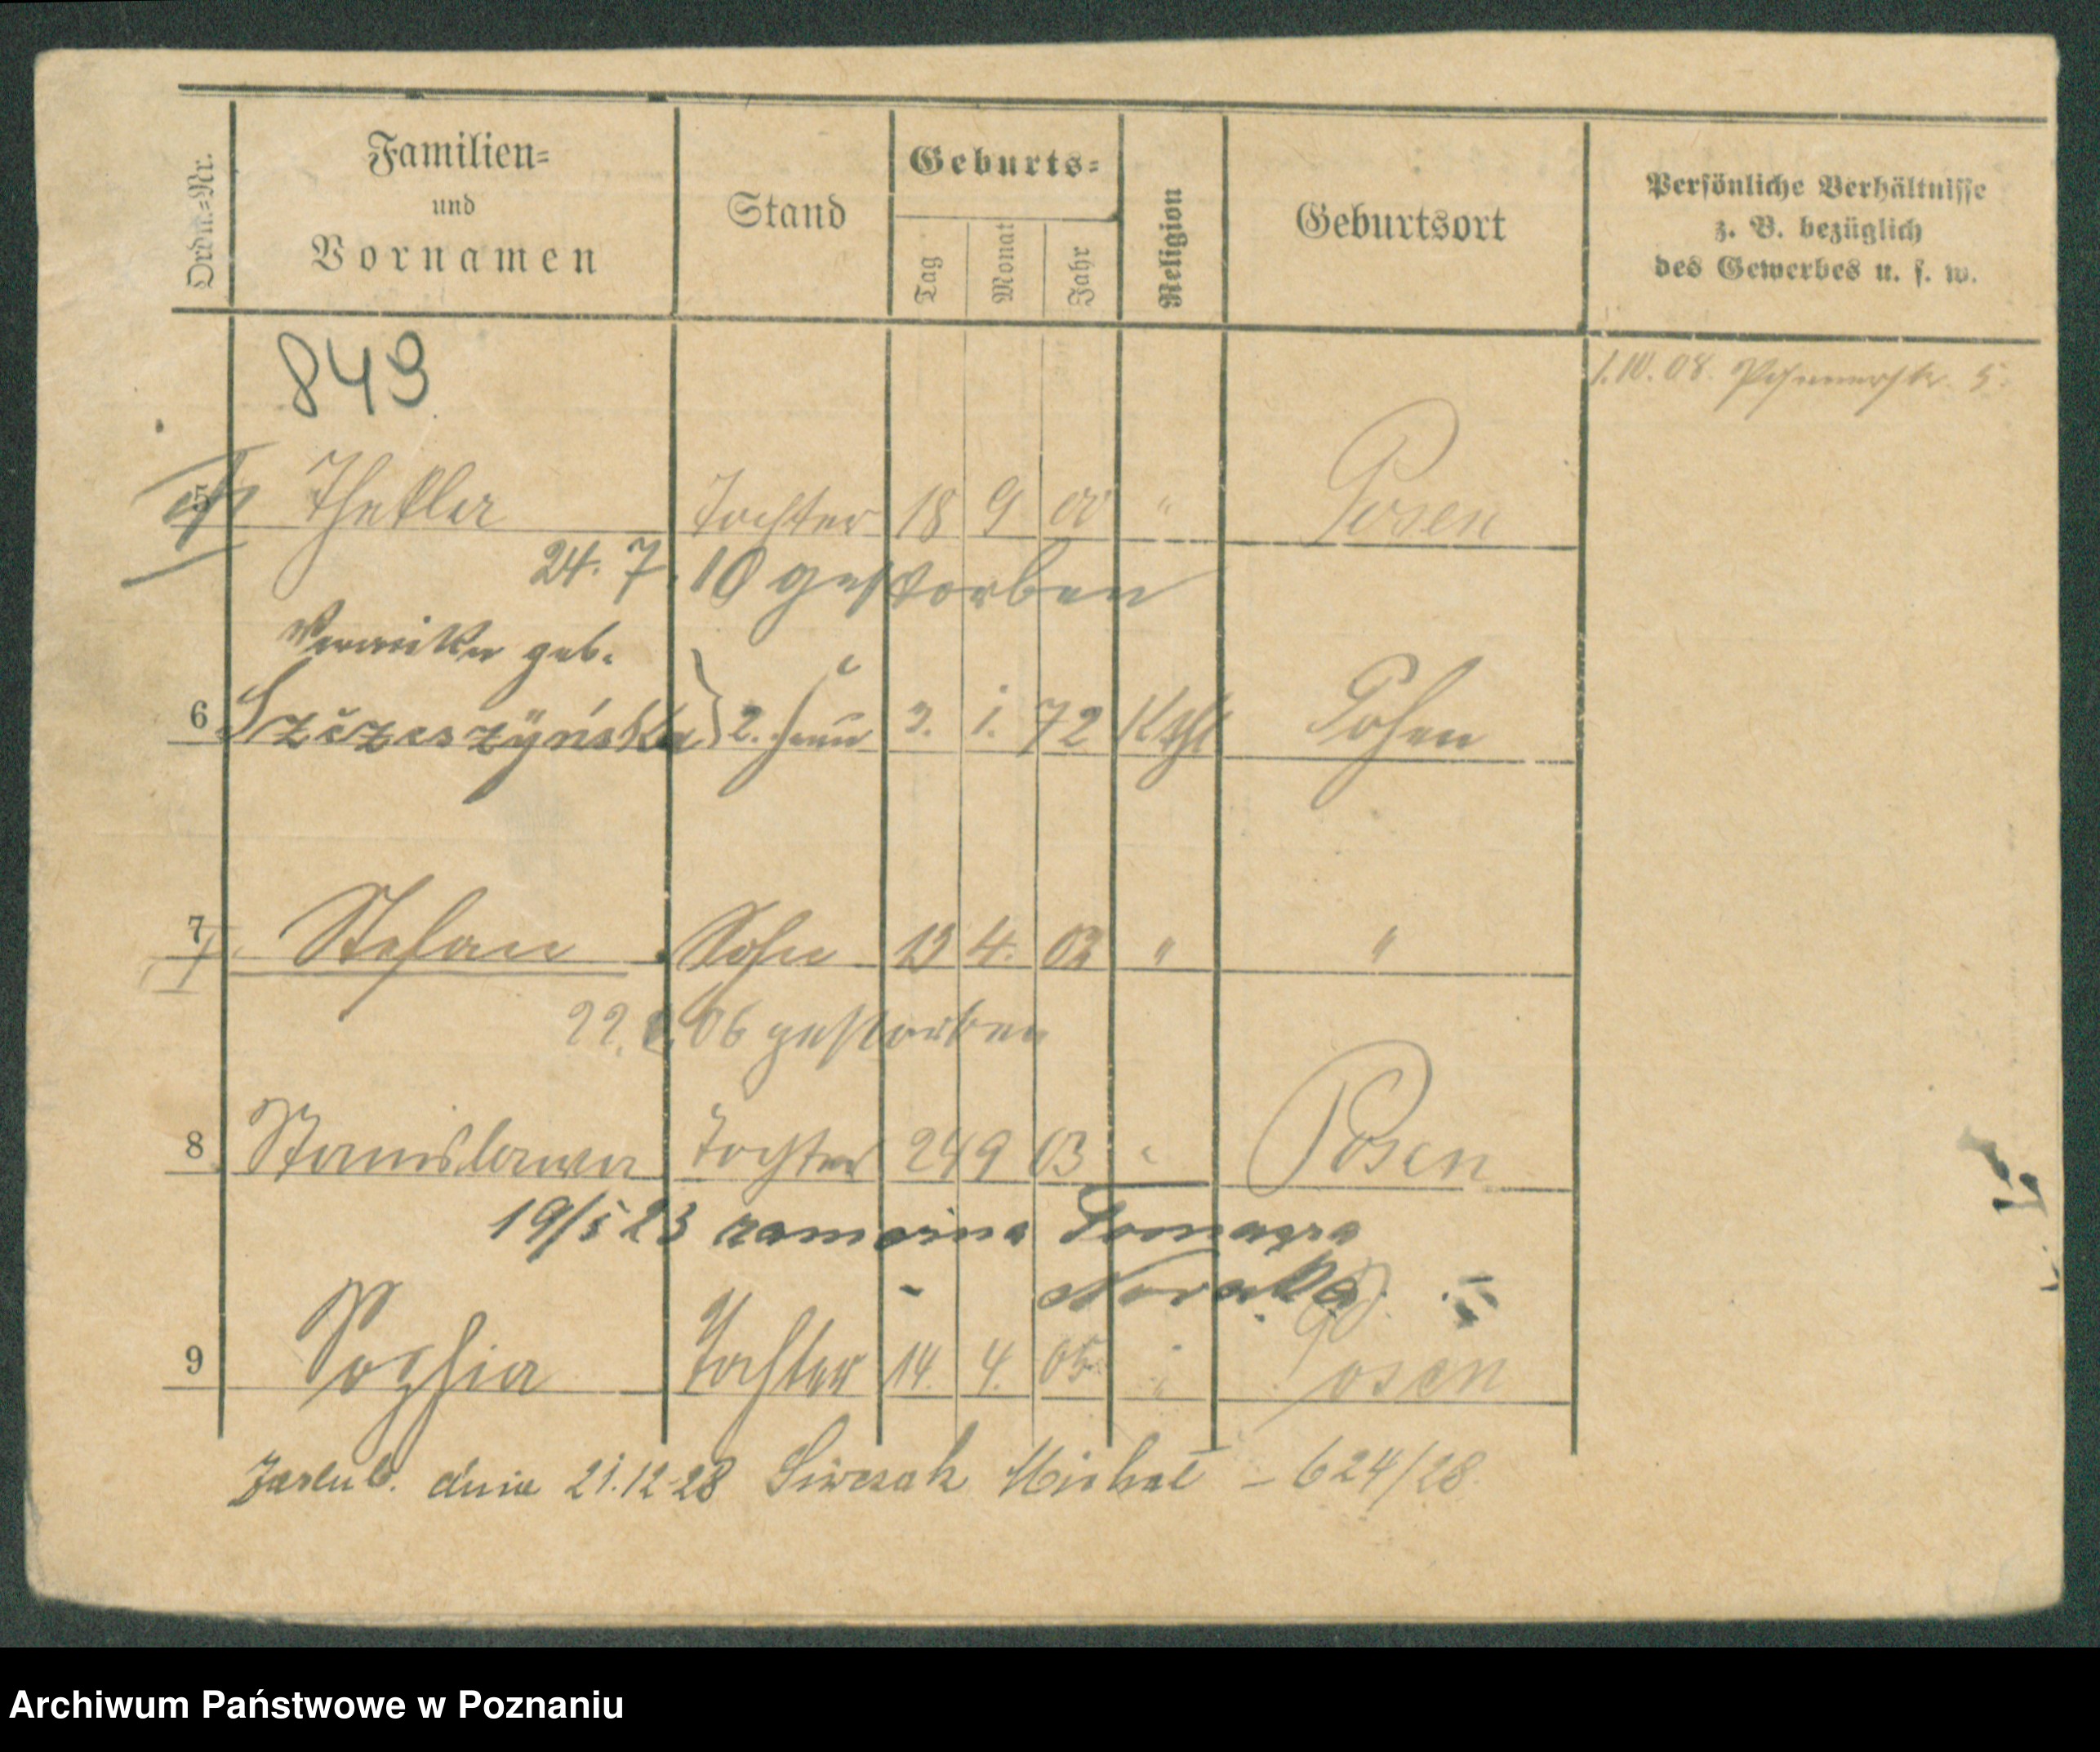 Ordn.=Nr.
Familien=
und
Vornamen
Stand
Geburts=
Tag
Monat
Jahr
Religion
Geburtsort
Persönliche Verhältnisse
z. B. bezüglich
des Gewerbes u. s. w.
849
1.10.08. 5.
5 Thekla Tochter 18 9 00 " Posen
24. 7. 10 gestorben
Veronika geb.
6 Szczeszyńska } 2. Frau 3. 1. 72 Kth Posen
7 Stefan Sohn 13 4. 02 " "
22. 06 gestorben
8 Stanislawa Tochter 24 9 03 " Posen
19/5 23 zamężna Tomasza
Nowaka
9 Sophia Tochter 14. 4. 05 " Posen
Zaślub. dnia 21.12.28 Siwczak Michał - 624/28.
Archiwum Państwowe w Poznaniu